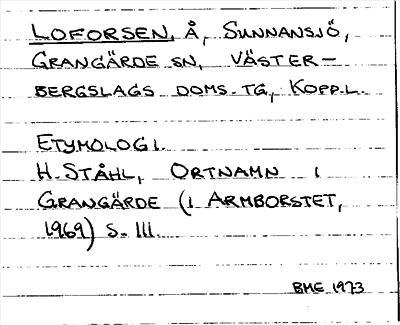 LOFORSEN, Å, SUNNANSJÖ,
GRANGÄRDE SN, VÄSTER-
BERGSLAGS DOMS. TG, KOPP.L.
ETYMOLOGI.
H. STÅHL, ORTNAMN I
GRANGÄRDE (I ARMBORSTET,
1969) S. 111.
BME 1973